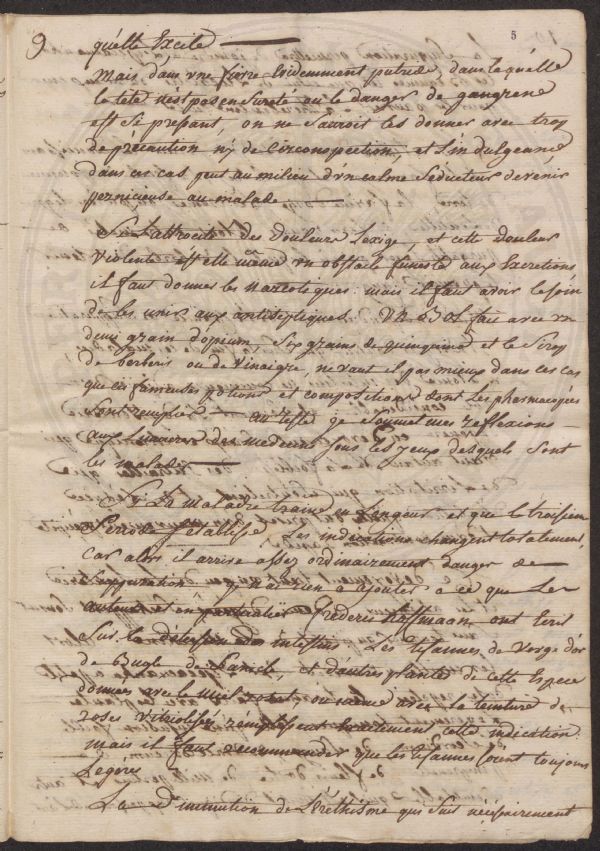 9 5
qu'elle Excite
Mais dans une fievre Evidemment putride, dans laquelle
la tete n'est pas en Sureté ou le danger de gangrene
est Si pressant, on ne Sauroit les donner avec trop
de précaution ny de Circonspection, et L'indulgence
dans ces cas peut au milieu d'un calme Seducteur devenir
pernicieuse au malade
Si L'attrocité des douleurs L'exige, et cette douleur
violente est elle même un obstacle funeste aux Excretions
il faut donner les narcotiques: mais il faut avoir le soin
de les unir aux antiseptiques. Un Bol fait avec un
demi grain d'opium, Six grains de quinquina et le Sirop
de berberis ou de vinaigre, ne vaut il pas mieux dans ces cas
que ces fameuses potions et compositions dont les pharmacopées
Sont remplies au reste je Soumet mes reflexions
aux Lumieres des medecins Sous les yeux desquels Sont
les malades
Si La maladie traine en Longueur et que le troisieme
Periode S'etablisse Les indications changent totalement,
Car alors il arrive assez ordinairement danger de
Suppuration je n'ai rien a ajouter a ce que Les
auteurs et en particulier frederic hoffmann ont Ecrit
Sur les des intestins. Les tisannes de Verge d'or
de Bugle de Sanicle, et d'autres plantes de cette Espece
données avec le miel rosat ou même avec la teinture de
roses vitriolisée remplissent cette indication
mais il faut recommander que les tisannes Soient toujours
Legéres
La Diminution de L'eréthisme qui Suit nécessairement